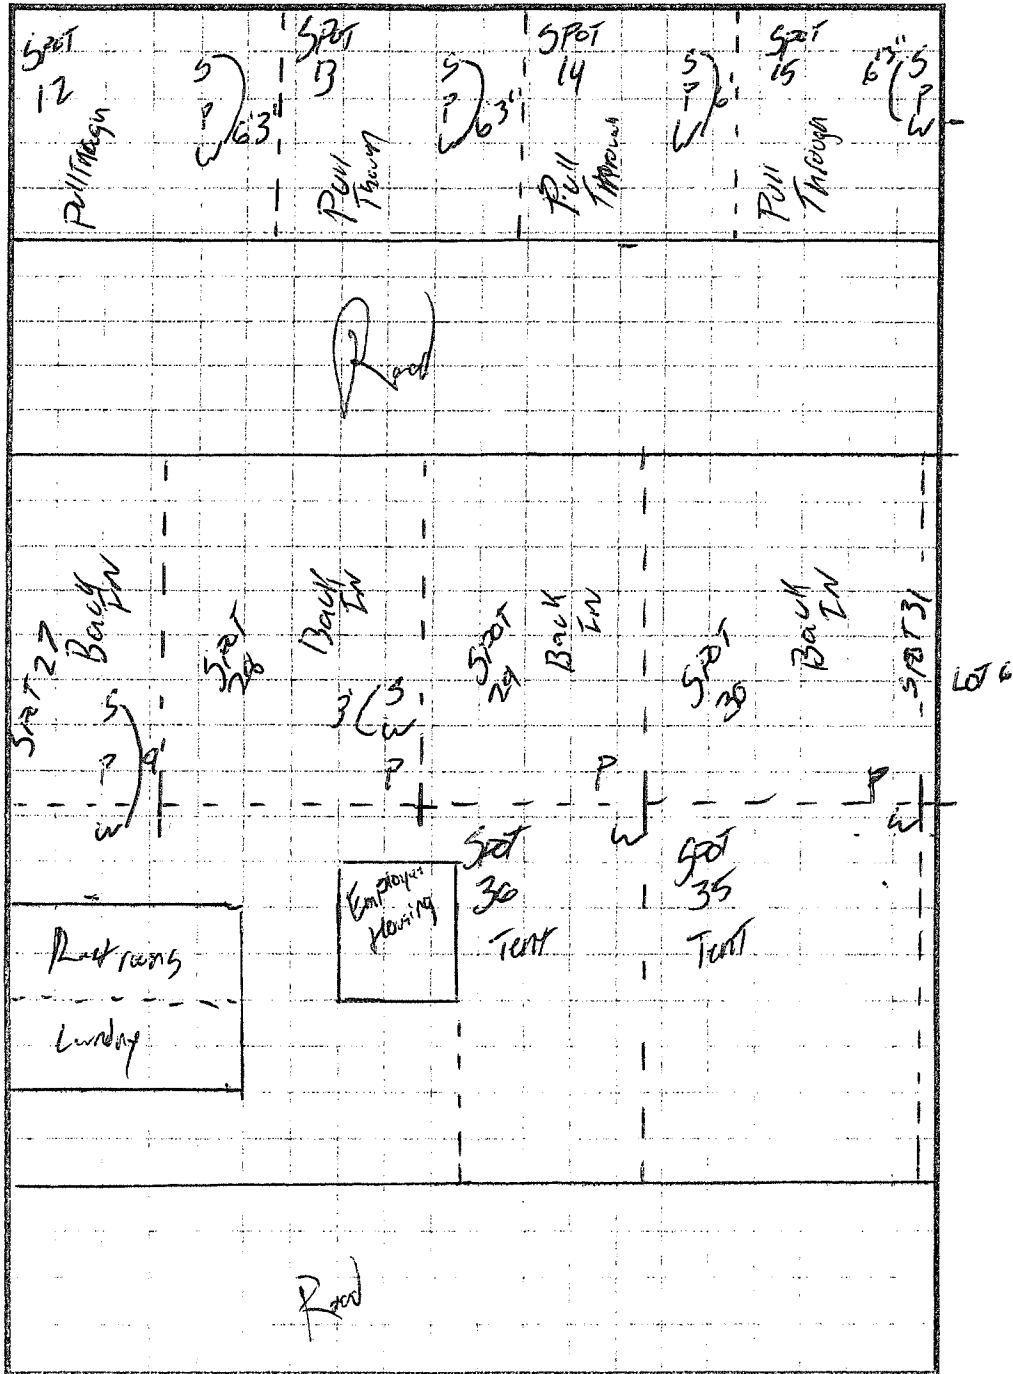 SPOT
12
Pull Through
S
P
W
6'3"
SPOT
13
Pull
Through
S
P
W
6'3"
SPOT
14
Pull
Through
S
P
W
6'
SPOT
15
Pull
Through
6'3"
S
P
W
Road
SPOT 27
Back
IN
S
P
W
9'
SPOT
28
Back
IN
3'
S
W
P
SPOT
29
Back
IN
P
W
SPOT
30
Back
IN
P
W
SPOT 31
LOT 6
Restrooms
Laundry
Employee
Housing
SPOT
36
Tent
SPOT
35
Tent
Road